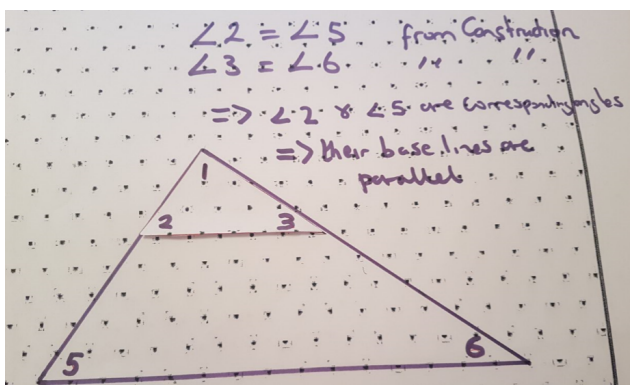 ∠2 = ∠5 from Construction
∠3 = ∠6. " . "
=> ∠2 & ∠5 are corresponding angles
=> their base lines are
parallel
1
2 3
5 6